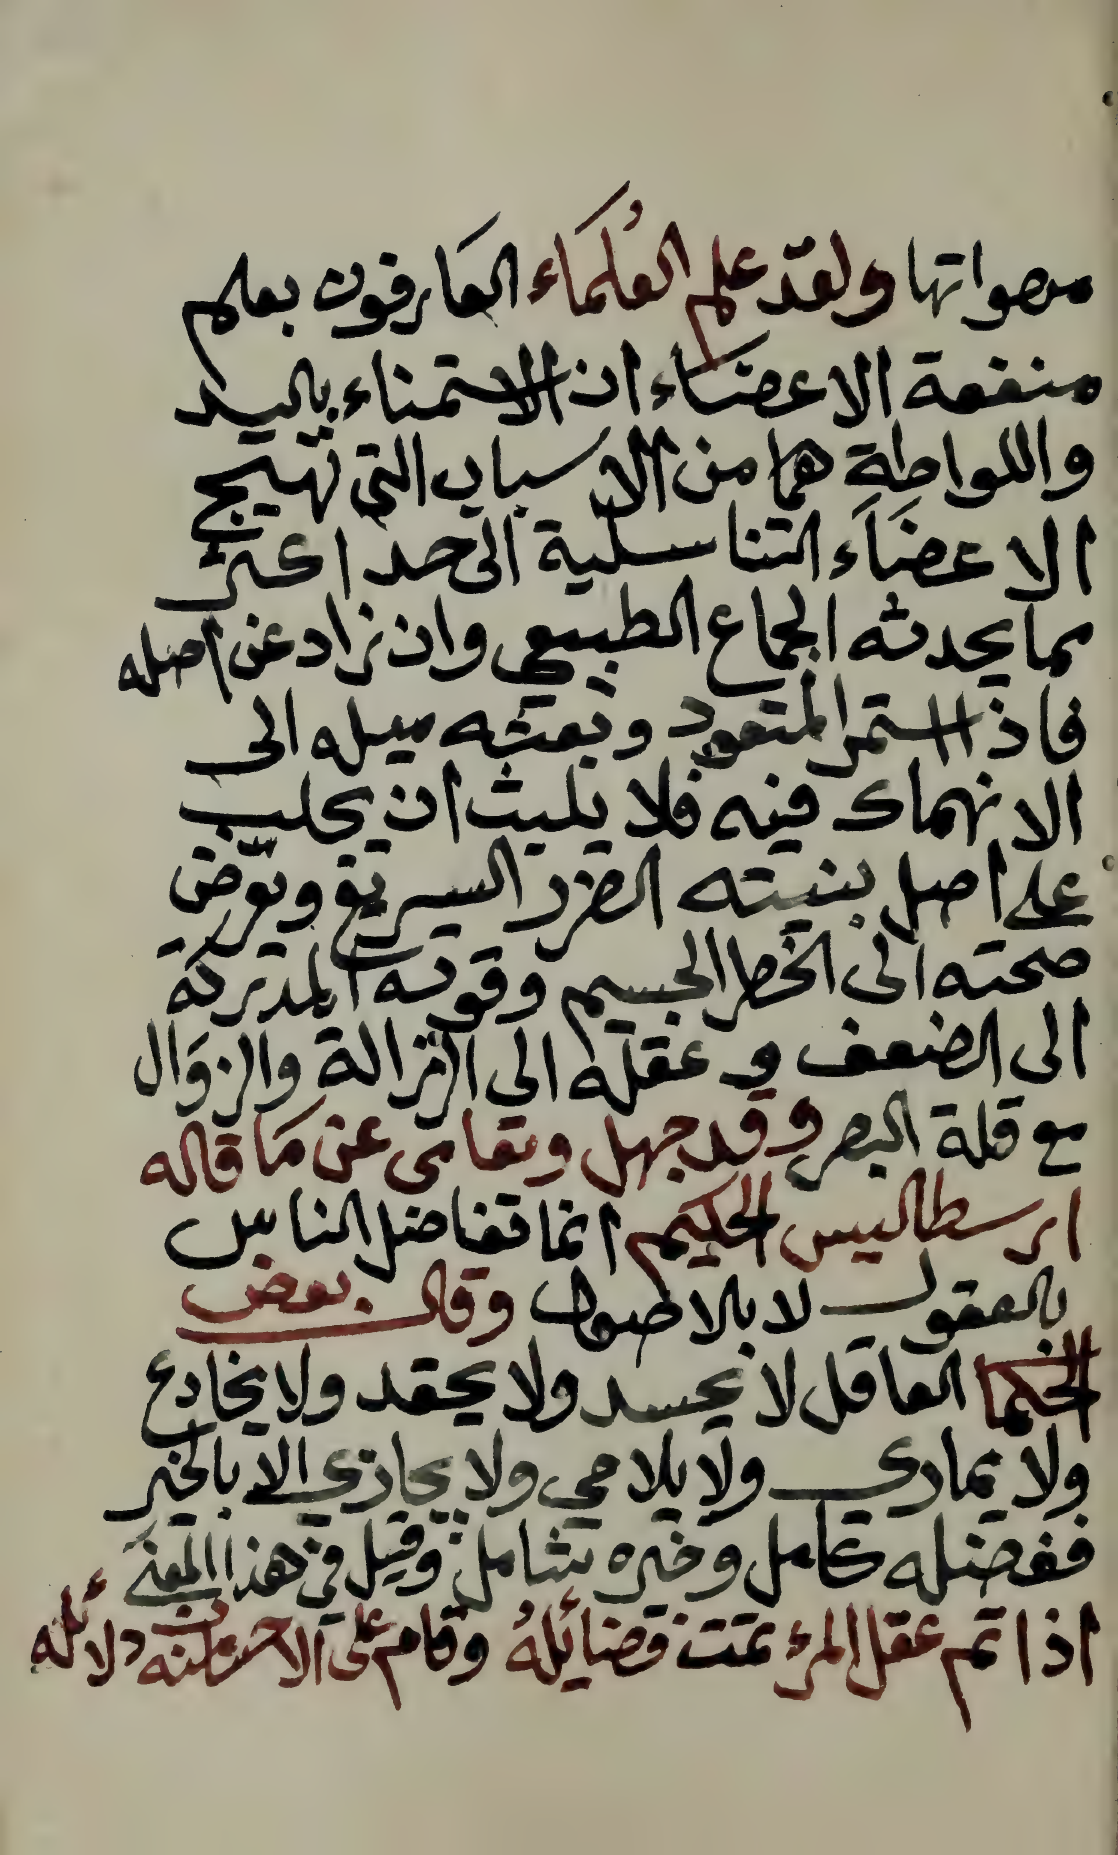 مهواتها ولقد علم العُلَماء العَارفون بعلم
منفعة الاعضَاء ان الاستمناء باليد
واللواطة هما من الاسباب التي تهيج
الاعضَاء التناسلية الى حد اكثر
مما يحدثه الجماع الطبيعي وان زاد عن اصله
فاذ استمر المتعود وبعثه ميله الى
الانهماك فيه فلا يلبث ان يجلب
على اصل بنيته الضرر السريع ويعرّض
صحته الى الخطر الجسيم وقوته المدركة
الى الضعف وعقله الى الازالة والزوَال
مع قلة البصر وقد جهل وتعامى عن مَا قاله
ارسطاليس الحكيم انما تفاضل الناس
بالعقول لا بالاصول وقال بعض
الحكما العاقل لا يحسد ولا يحقد ولا يخادع
ولا يمادي ولا يلاحي ولا يجازي الا بالخير
ففضله كامل وخيره شامل وقيل في هذا المعنَى
اذا تم عقل المرء تمت فضائلهُ وقام على الاحسان منه دلائله